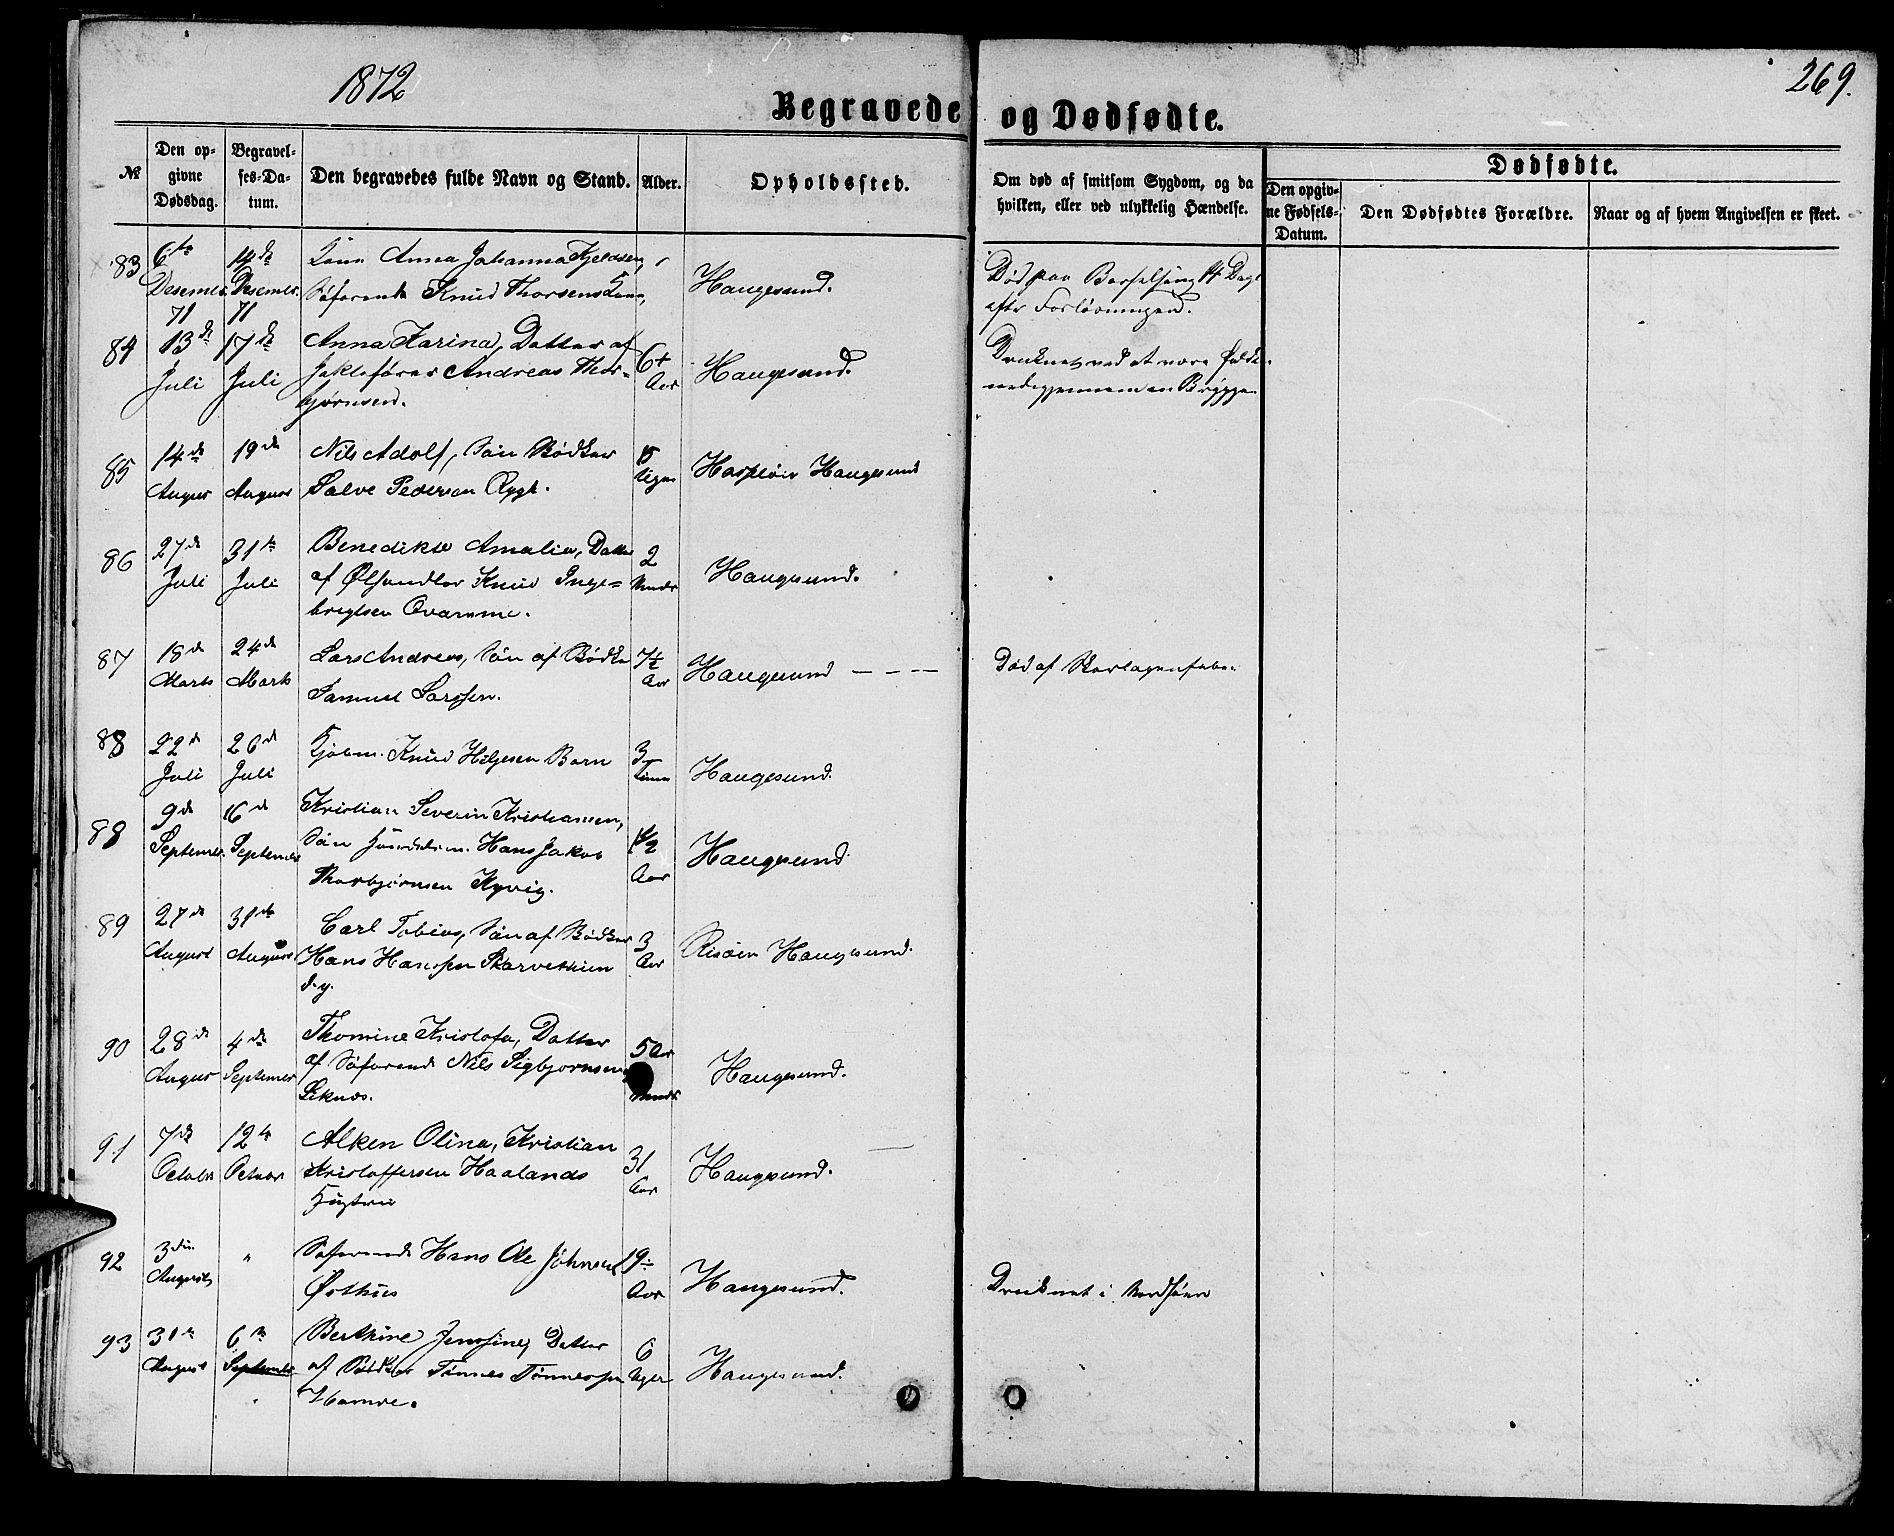 1872
269.
Begravede og Dødfødte.
№
Den op-
givne
Dødsdag.
Begravel-
ses-Da-
tum.
Den begravedes fulde Navn og Stand.
Alder.
Opholdssted.
Om død af smitsom Sygdom, og da
hvilken, eller ved ulykkelig Hændelse.
Dødfødte.
Den opgiv-
ne Fødsels-
Datum.
Den Dødfødtes Forældre.
Naar og af hvem Angivelsen er skeet.
83 6te 14de Kone Anna Johanna
Desember Desember Søfarende Knud Thorsens Kone Haugesund.
71 71
Død paa Barselseng 14 Dage
efter Forløsningen.
84 13de 17de Anna Karina, Datter af 6
Juli Juli Jaktefører Andreas Thor- Aar Haugesund.
bjørnsen.
Druknet ved at være falden
ned gjennem en Brygge
85 14de 19de Nils Adolf, Søn Bødker
August August Salve Pedersen Rygh. Uger Hasseløen Haugesund
86 27de 31te Benedikte Amalia, Datter 2
Juli Juli af Ølhandler Knud Inge-
brigtsen Qvamme. Haugesund.
87 18de 24de Lars Andreas, Søn af Bødker 7½
Marts Marts Samuel Larssen. Aar Haugesund - - - -
Død af Skarlagensfeber
88 22de 26de Kjøbm. Knud Helgesen Barn 3
Juli Juli Timer Haugesund.
88 9de 16de Kristian Severin Kristiansen,
September September Søn Hans Jakob Haugesund
Thorbjørnsen Kyvig. Aar
89 27de 31te Carl Tobias, Søn af Bødker 3
August August Hans Hanssen Aar Risøen Haugesund.
90 28de 4de Thomine Kristofa, Datter 5 Aar
August September af Søfarende Nils Sigbjørnsen Haugesund.
91 7de 12te Alken Olina, Kristian 31
October October Kristoffersen Haalands Aar Haugesund.
Hustru
92 3die " Søfarende Hans Ole Johnsen 19
August Østhus Aar Haugesund.
Druknet i Nordsøen
93 31te 6te Berthine Jenssine, Datter 6
August September af Bødker Tønnes Tønnessen Uger Haugesund.
Hamre.